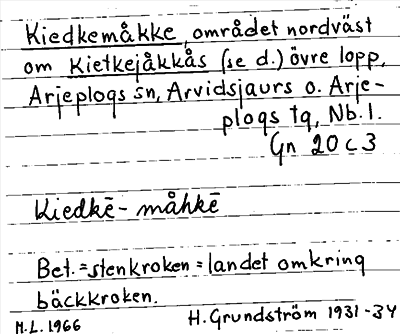 Kiedkemåkke, området nordväst
om Kietkejåkkås (se d.) övre lopp,
Arjeplogs sn, Arvidsjaurs o. Arje-
plogs tg, Nb. l.
Gn 20 c 3
Kiedkē - måhkē
Bet. = stenkroken = landet omkring
bäckkroken.
M.L. 1966 H. Grundström 1931-34